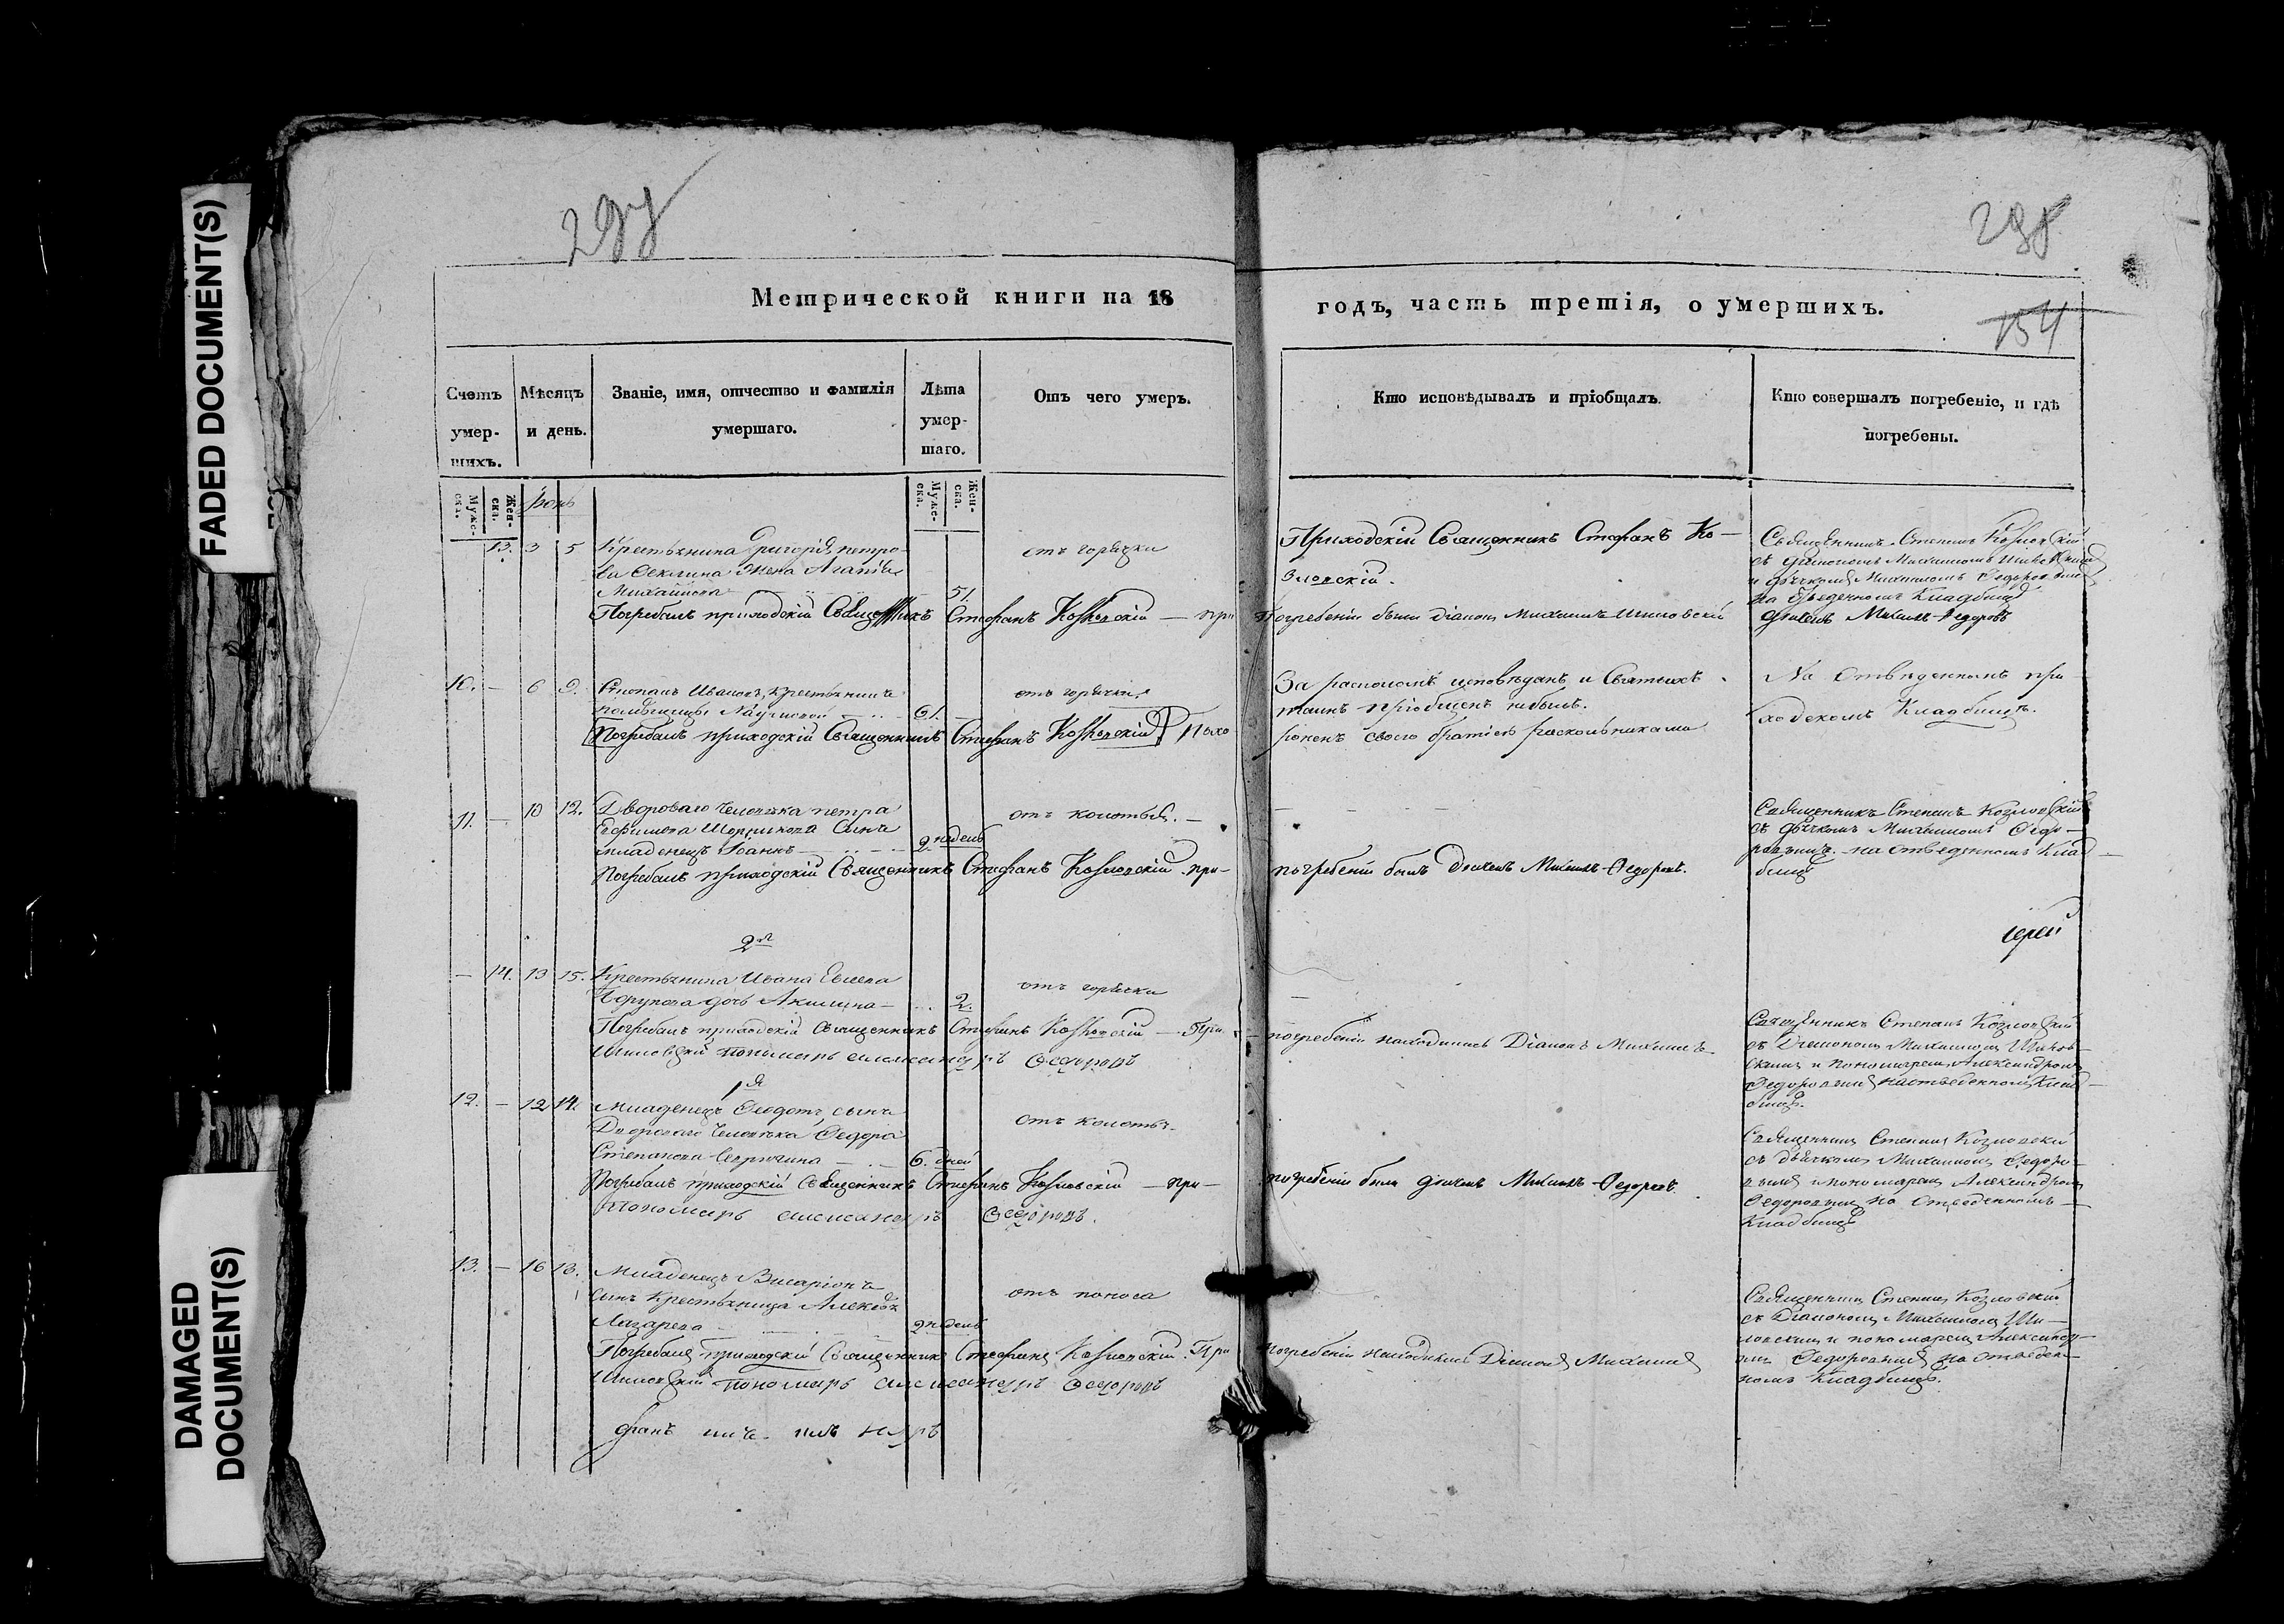 FADED DOCUMENT(S)
DAMAGED
DOCUMENT(S)
297
298
154
Метрической книги на 18
годъ, часть третія, о умершихъ.
Счетъ умер-шихъ.
Мѣсяцъ и день.
Званіе, имя, отчество и фамилія умершаго.
Лѣта умер-шаго.
Отъ чего умеръ.
Кто исповѣдывалъ и пріобщалъ.
Кто совершалъ погребеніе, и гдѣ погребены.
Муже-ска.
Жен-ска.
Муже-ска.
Жен-ска.
13. 3 5 Крестьянина Григорія Петро-
ва жена Агапія
Михайлова 51.
отъ горячки
Приходскій Священникъ Стефанъ Ко-
зловскій.
Священникъ Степанъ Козловскій
съ діакономъ Михаиломъ
и дьячкомъ Михаиломъ Федоровымъ
на отведенномъ кладбищѣ
Погребалъ приходскій Священникъ Стефанъ Козловскій — при погребеніи были діаконъ Михаилъ Шиловскій
дьячекъ Михаилъ Федоровъ
10. — 6 9. Степанъ Ивановъ, крестьянинъ
помѣщицы 61.
отъ горячки
За расколомъ исповѣданъ и Святыхъ
таинъ пріобщенъ небылъ.
На отведенномъ при-
ходскомъ кладбищѣ.
Погребалъ приходскій Священникъ Стефанъ Козловскій Похо
роненъ своего братіею раскольниками
11. — 10 12. Двороваго человѣка Петра
Ефимова сынъ
младенецъ Іоаннъ 2 недель
отъ колотья. —
Священникъ Степанъ Козловскій
съ дьячкомъ Михаиломъ Федо-
ровымъ на отведенномъ клад-
бищѣ
Погребалъ приходскій Священникъ Стефанъ Козловскій при-
погребеніи былъ дьячекъ Михаилъ Федоровъ.
іерей
2я
— 14. 13 15. Крестьянина Ивана
дочь Акилина — 2.
отъ горячки
Священникъ Степанъ Козловскій
съ Діакономъ Михаиломъ Шилов-
скимъ и пономаремъ Александромъ
Федоровымъ на отведенномъ клад-
бищѣ.
Погребалъ приходскій Священникъ Стефанъ Козловскій — При
погребеніи находились Діаконъ Михаилъ
Шиловскій пономарь Александръ Федоровъ
1я
12. — 12 14. Младенецъ Феодотъ, сынъ
Двороваго человѣка Федора
Степанова 6. дней
отъ колотья.
Священникъ Степанъ Козловскій
съ дьячкомъ Михаиломъ Федоро-
вымъ и пономаремъ Александромъ
Федоровымъ на отведенномъ
кладбищѣ
Погребалъ приходскій Священникъ Стефанъ Козловскій — при —
погребеніи были дьячекъ Михаилъ Федоровъ
Пономарь Александръ Федоровъ.
13. — 16 18. Младенецъ Висаріонъ
сынъ крестьянина Алексѣя
Лазарева 2 недель
отъ поноса
Священникъ Степанъ Козловскій
съ Діакономъ Михаиломъ Ши-
ловскимъ и пономаремъ Александ-
Федоровымъ на отведен-
номъ кладбищѣ.
Погребалъ приходскій Священникъ Стефанъ Козловскій. При
погребеніи находились Діаконъ Михаилъ
Шиловскій пономарь Александръ Федоровъ